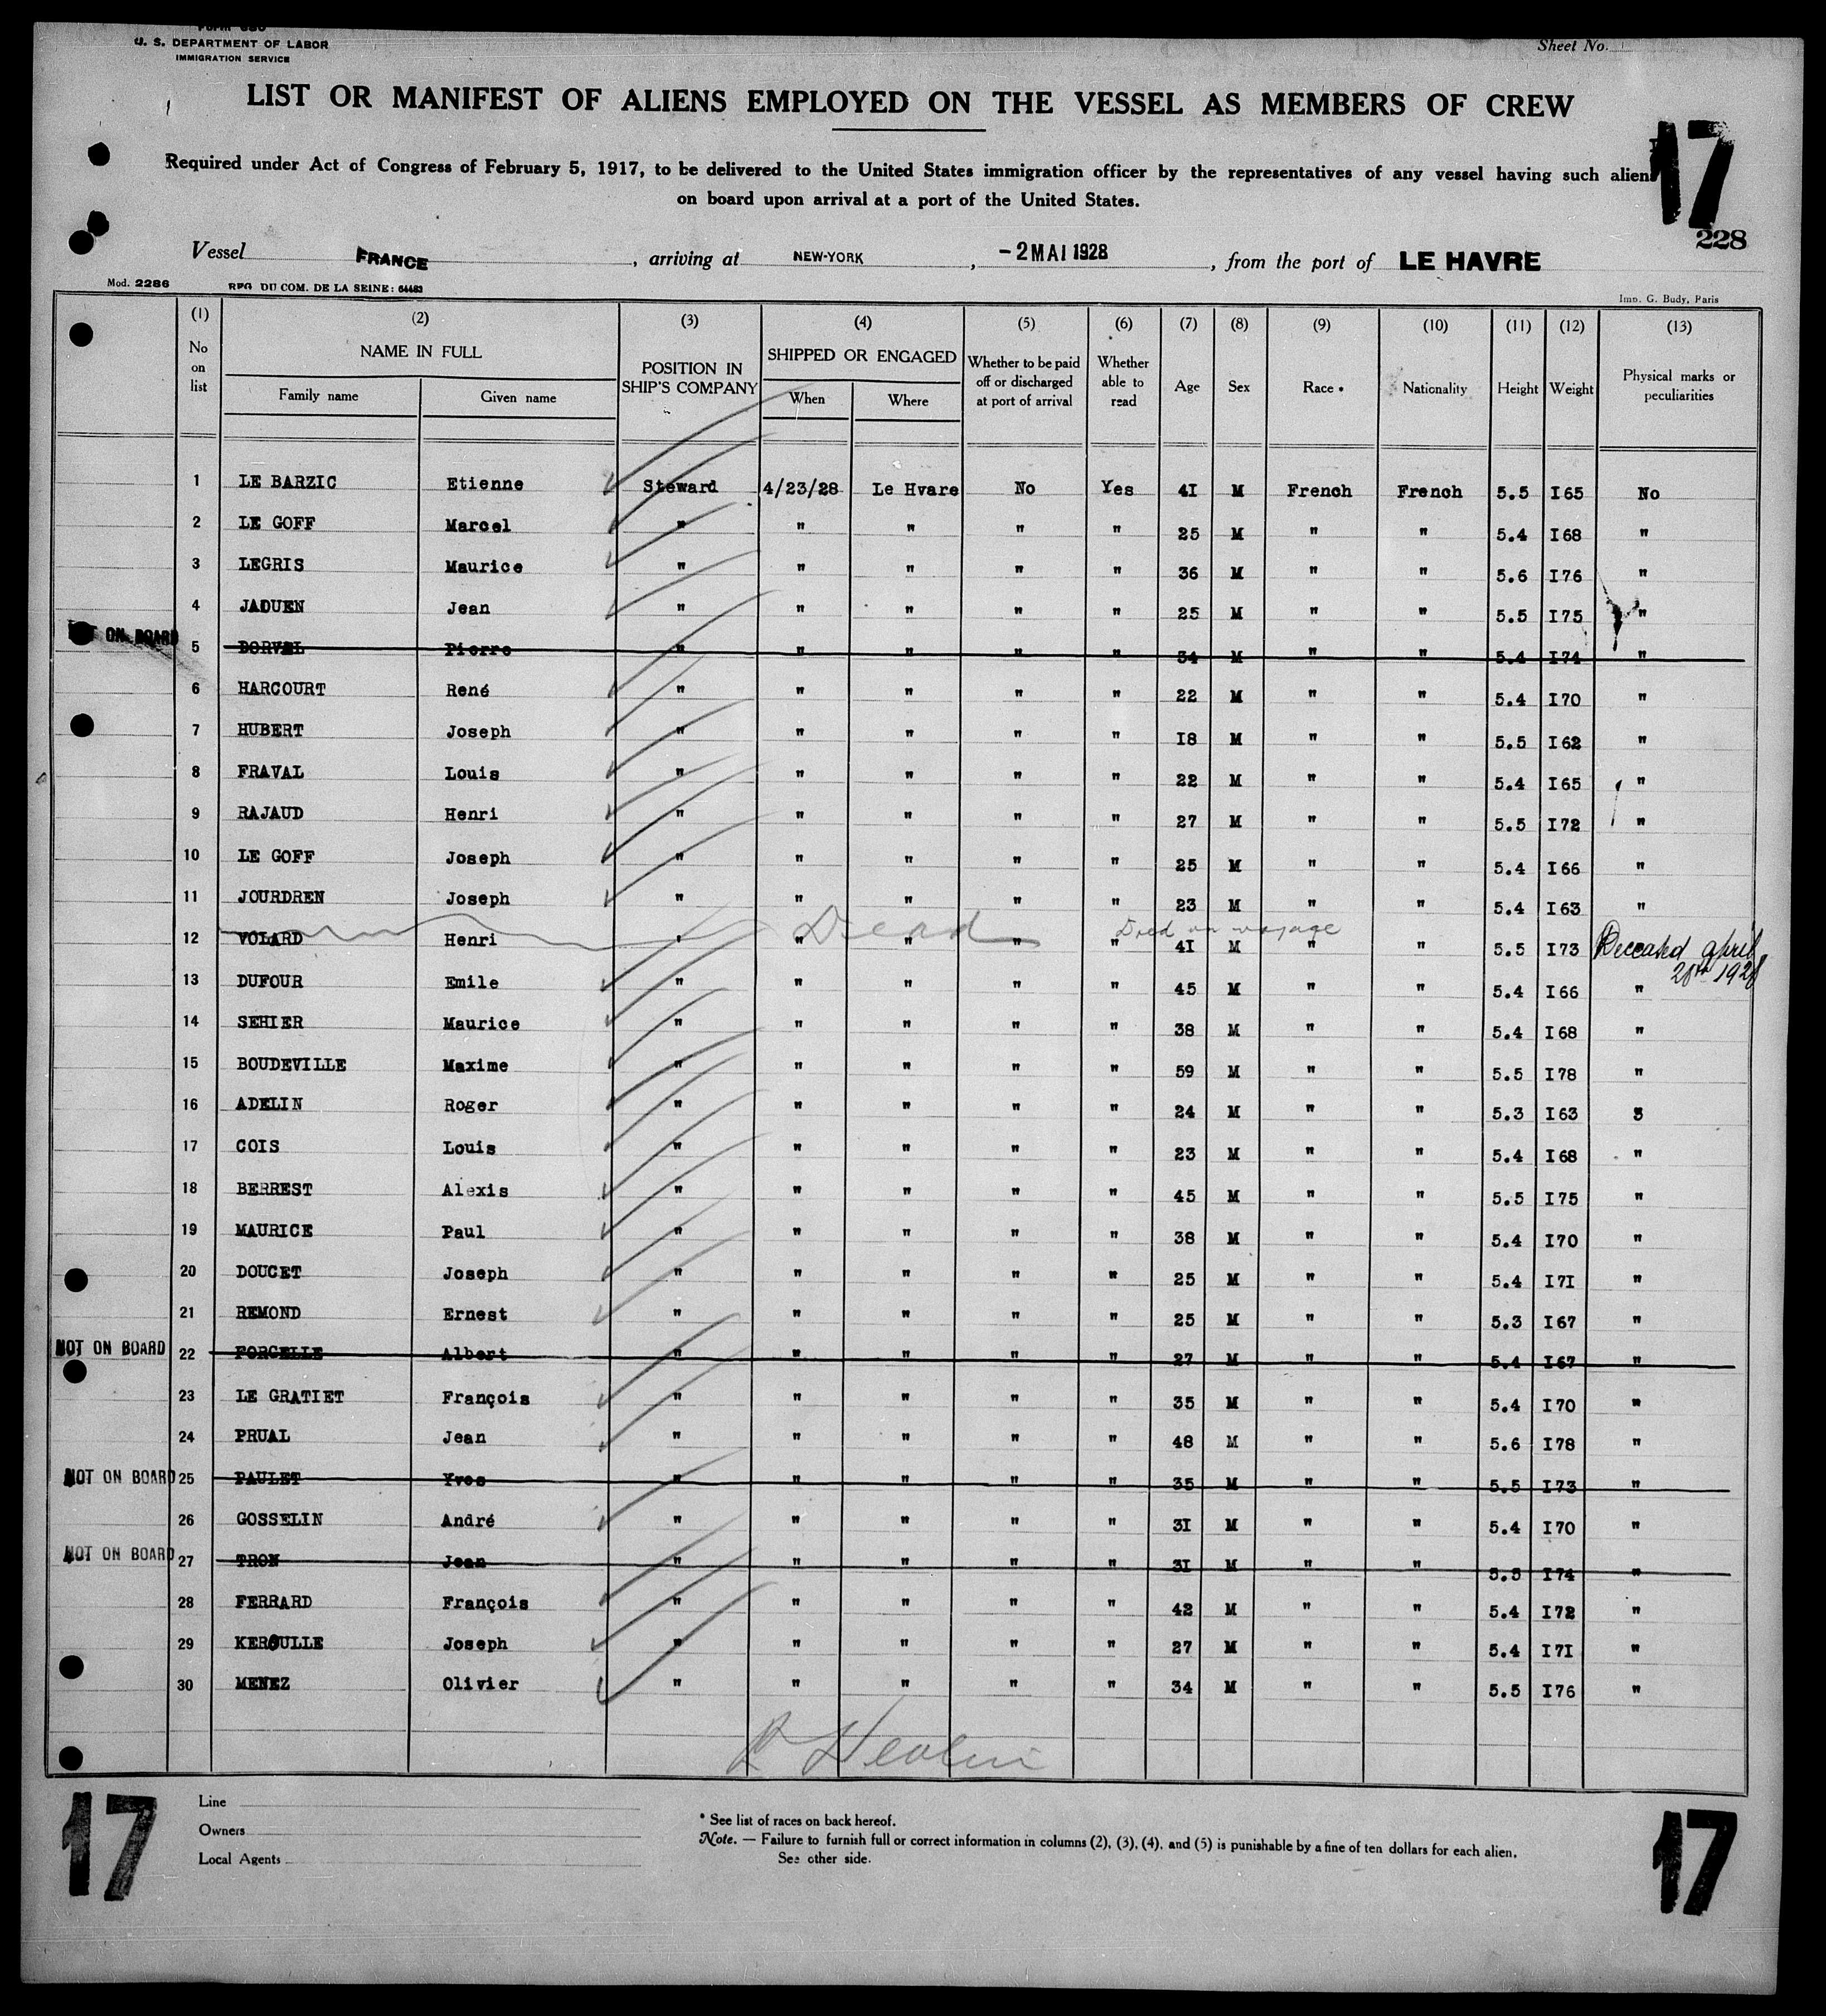 U. S. DEPARTMENT OF LABOR
IMMIGRATION SERVICE
Sheet No.
LIST OR MANIFEST OF ALIENS EMPLOYED ON THE VESSEL AS MEMBERS OF CREW
17
Required under Act of Congress of February 5, 1917, to be delivered to the United States immigration officer by the representatives of any vessel having such alien
on board upon arrival at a port of the United States.
228
Vessel FRANCE, arriving at NEW-YORK, - 2 MAI 1928, from the port of LE HAVRE
Mod. 2286 REG DU COM. DE LA SEINE: 64483 Imp. G. Budy, Paris
(1) (2) (3) (4) (5) (6) (7) (8) (9) (10) (11) (12) (13)
No on list NAME IN FULL Family name Given name POSITION IN SHIP'S COMPANY SHIPPED OR ENGAGED When Where Whether to be paid off or discharged at port of arrival Whether able to read Age Sex Race • Nationality Height Weight Physical marks or peculiarities
1 LE BARZIC Etienne Steward 4/23/28 Le Hvare No Yes 4I M French French 5.5 I65 No
2 LE GOFF Marcel " " " " " 25 M " " 5.4 I68 "
3 LEGRIS Maurice " " " " " 36 M " " 5.6 I76 "
4 JADUEN Jean " " " " " 25 M " " 5.5 I75 "
ON BOARD 5 DORVAL Pierre " " " " " 34 M " " 5.4 I74 "
6 HARCOURT René " " " " " 22 M " " 5.4 I70 "
7 HUBERT Joseph " " " " " I8 M " " 5.5 I62 "
8 FRAVAL Louis " " " " " 22 M " " 5.4 I65 "
9 RAJAUD Henri " " " " " 27 M " " 5.5 I72 "
10 LE GOFF Joseph " " " " " 25 M " " 5.4 I66 "
11 JOURDREN Joseph " " " " " 23 M " " 5.4 I63 "
Dead Died on voyage
12 VOLARD Henri " " " " " 4I M " " 5.5 I73 Deceased april
28th 1928
13 DUFOUR Emile " " " " " 45 M " " 5.4 I66 "
14 SEHIER Maurice " " " " " 38 M " " 5.4 I68 "
15 BOUDEVILLE Maxime " " " " " 59 M " " 5.5 I78 "
16 ADELIN Roger " " " " " 24 M " " 5.3 I63 3
17 COIS Louis " " " " " 23 M " " 5.4 I68 "
18 BERREST Alexis " " " " " 45 M " " 5.5 I75 "
19 MAURICE Paul " " " " " 38 M " " 5.4 I70 "
20 DOUCET Joseph " " " " " 25 M " " 5.4 I7I "
21 REMOND Ernest " " " " " 25 M " " 5.3 I67 "
NOT ON BOARD 22 PORCELLE Albert " " " " " 27 M " " 5.4 I67 "
23 LE GRATIET François " " " " " 35 M " " 5.4 I70 "
24 PRUAL Jean " " " " " 48 M " " 5.6 I78 "
NOT ON BOARD 25 PAULET Yves " " " " " 35 M " " 5.5 I73 "
26 GOSSELIN André " " " " " 3I M " " 5.4 I70 "
NOT ON BOARD 27 TRON Jean " " " " " 3I M " " 5.5 I74 "
28 FERRARD François " " " " " 42 M " " 5.4 I72 "
29 KEROULLE Joseph " " " " " 27 M " " 5.4 I7I "
30 MENEZ Olivier " " " " " 34 M " " 5.5 I76 "
17
Line
Owners
Local Agents
* See list of races on back hereof.
Note. — Failure to furnish full or correct information in columns (2), (3), (4), and (5) is punishable by a fine of ten dollars for each alien.
See other side.
17